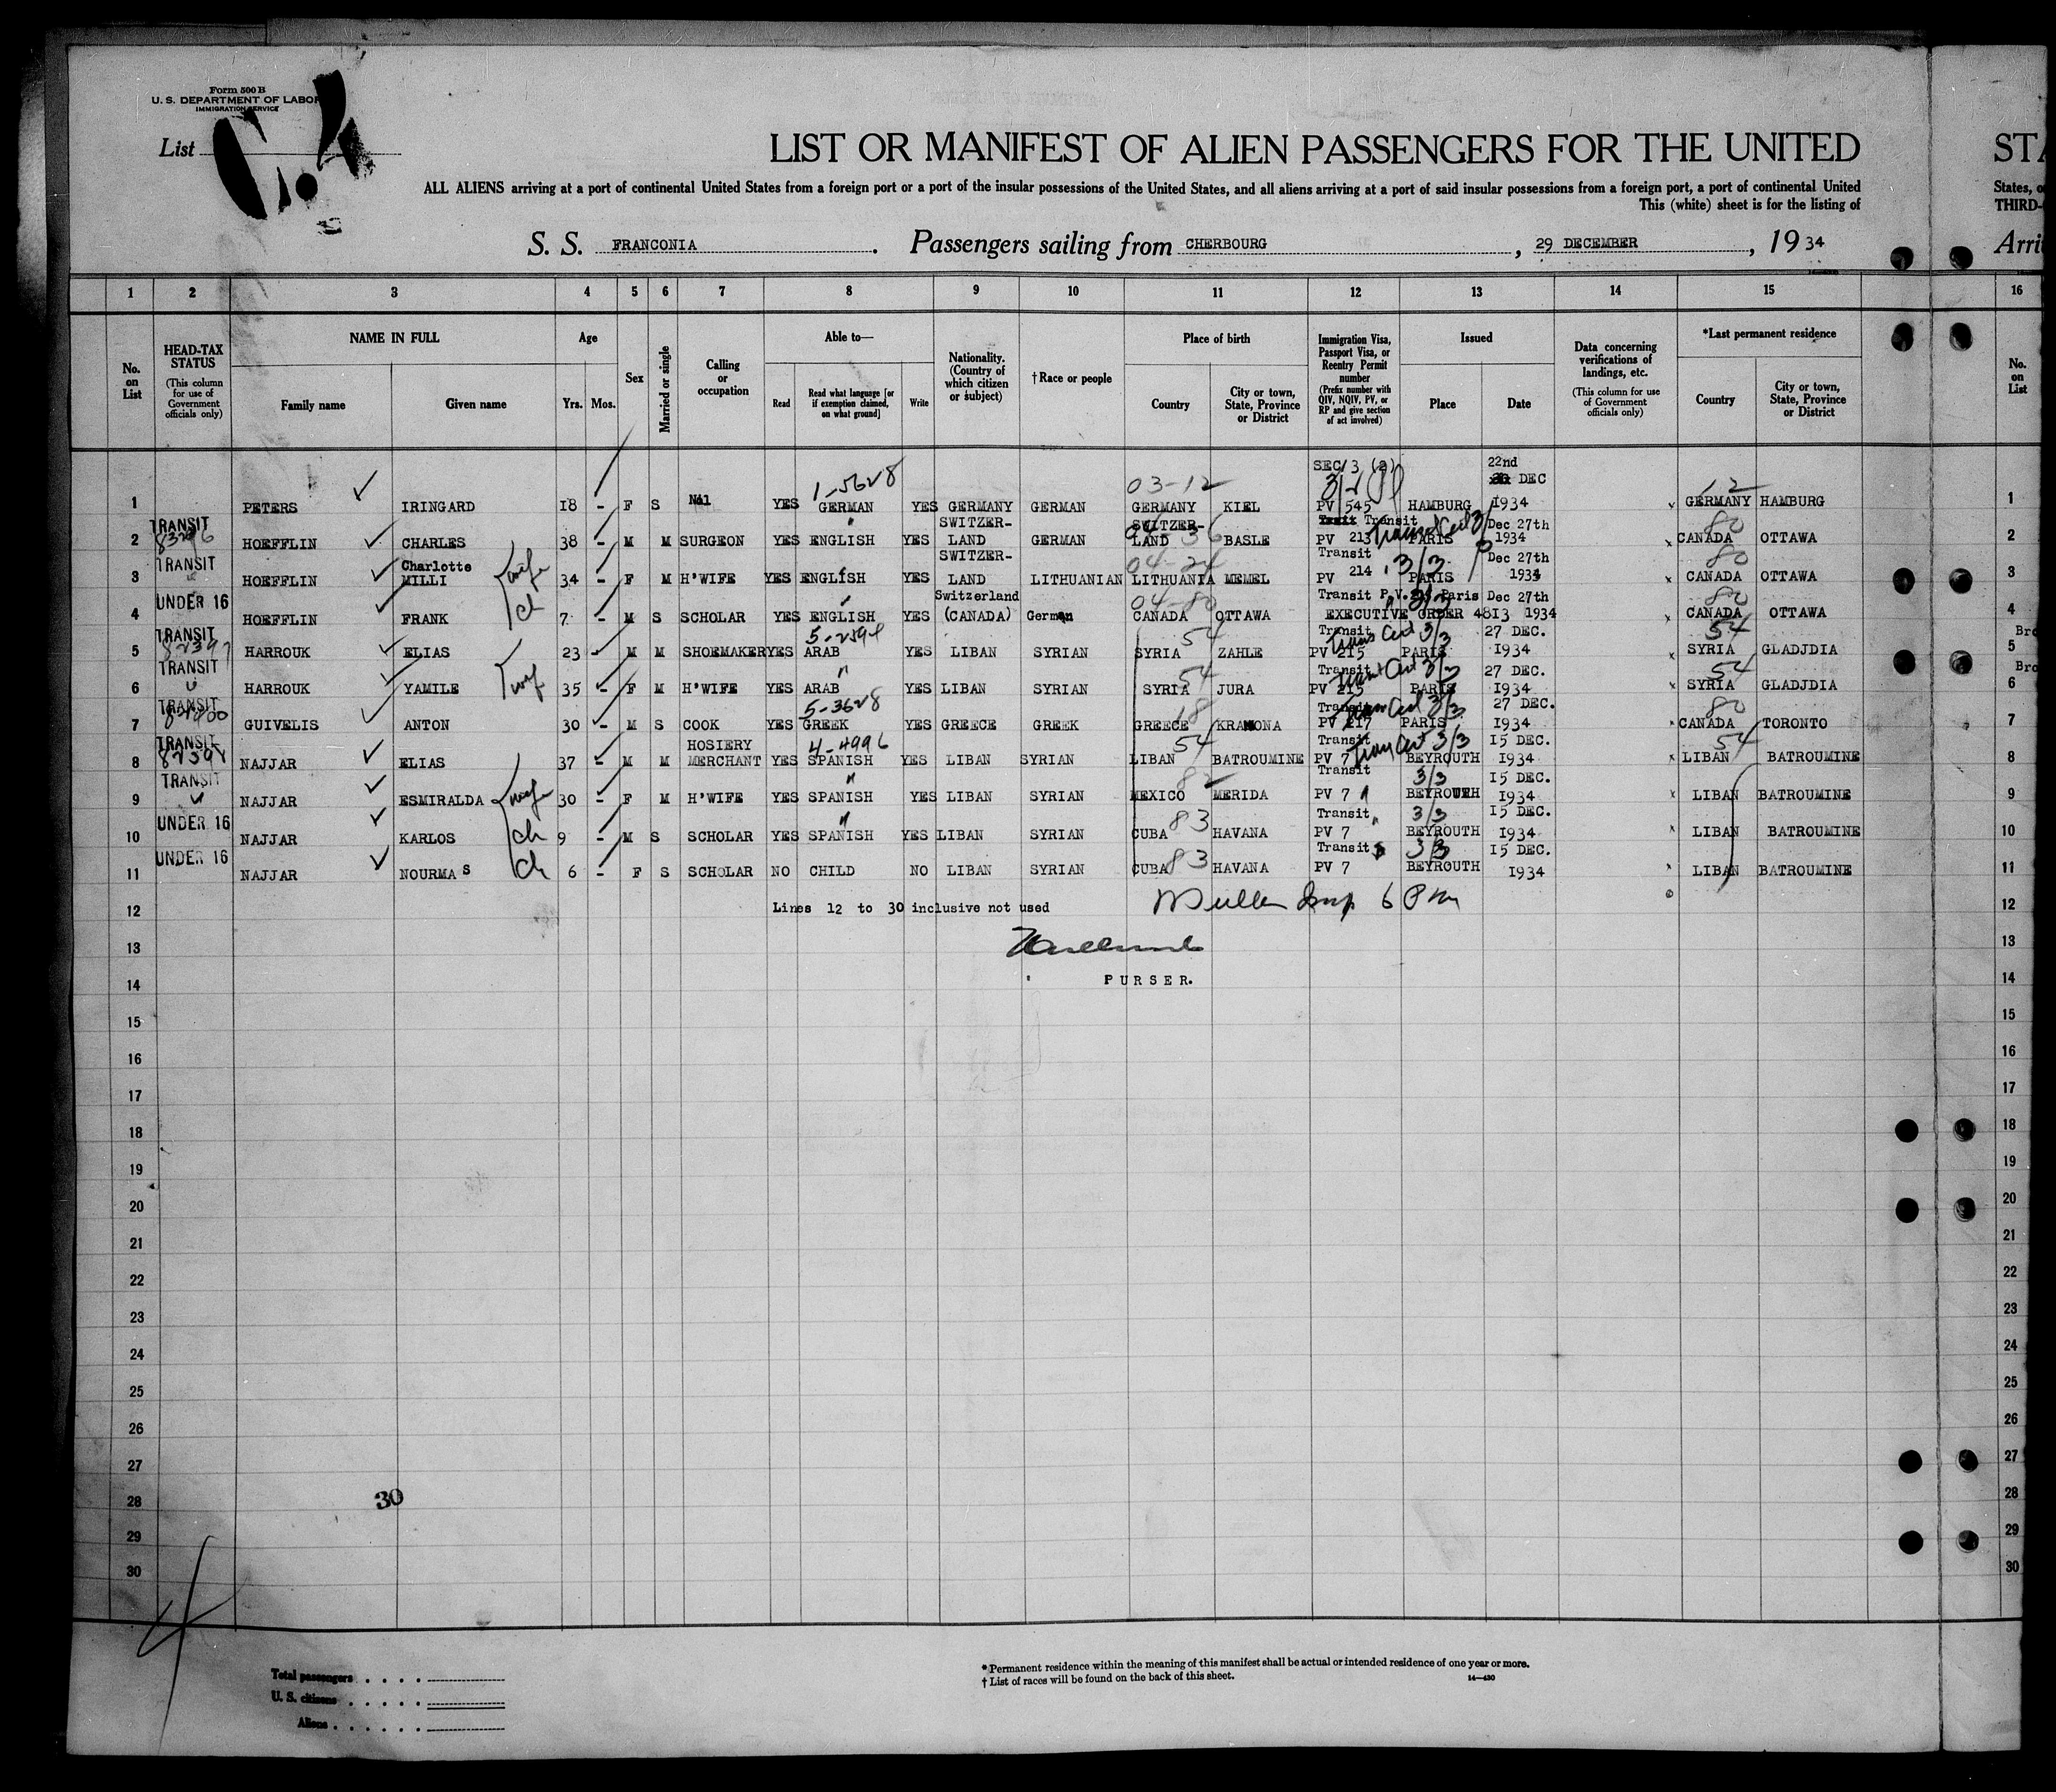 Form 500 B
U. S. DEPARTMENT OF LABOR
IMMIGRATION SERVICE
List
LIST OR MANIFEST OF ALIEN PASSENGERS FOR THE UNITED
ALL ALIENS arriving at a port of continental United States from a foreign port or a port of the insular possessions of the United States, and all aliens arriving at a port of said insular possessions from a foreign port, a port of continental United
This (white) sheet is for the listing of
S. S. FRANCONIA. Passengers sailing from CHERBOURG, 29 DECEMBER, 19 34
STA
States, o
THIRD-
Arri
1 2 3 4 5 6 7 8 9 10 11 12 13 14 15 16
No. on List
HEAD-TAX STATUS (This column for use of Government officials only)
NAME IN FULL
Family name Given name
Age
Yrs. Mos.
Sex
Married or single
Calling or occupation
Able to—
Read
Read what language [or if exemption claimed, on what ground]
Write
Nationality. (Country of which citizen or subject)
†Race or people
Place of birth
Country
City or town, State, Province or District
Immigration Visa, Passport Visa, or Reentry Permit number (Prefix number with QIV, NQIV, PV, or RP and give section of act involved)
Issued
Place Date
Data concerning verifications of landings, etc. (This column for use of Government officials only)
*Last permanent residence
Country
City or town, State, Province or District
No. on List
1-5628 03-12 SEC/3 (2) 22nd DEC 12
1 PETERS IRINGARD 18 - F S Nil YES GERMAN YES GERMANY GERMAN GERMANY KIEL PV 545 HAMBURG 1934 GERMANY HAMBURG 1
TRANSIT " SWITZER- SWITZER- Transit Dec 27th 80
2 HOEFFLIN CHARLES 38 - M M SURGEON YES ENGLISH YES LAND GERMAN LAND BASLE PV 213 PARIS 1934 CANADA OTTAWA 2
TRANSIT Charlotte wife SWITZER- 04-24 Transit 3/3 Dec 27th 80
3 HOEFFLIN MILLI 34 - F M H'WIFE YES ENGLISH YES LAND LITHUANIAN LITHUANIA MEMEL PV 214 PARIS 1934 CANADA OTTAWA 3
UNDER 16 ch Switzerland 04-80 Transit P.V. Paris Dec 27th 80
4 HOEFFLIN FRANK 7 - M S SCHOLAR YES ENGLISH YES (CANADA) German CANADA OTTAWA EXECUTIVE ORDER 4813 1934 CANADA OTTAWA 4
TRANSIT 82397 5-2594 54 Transit 3/3 27 DEC. 54 Bro
5 HARROUK ELIAS 23 - M M SHOEMAKER YES ARAB YES LIBAN SYRIAN SYRIA ZAHLE PV 215 PARIS 1934 SYRIA GLADJDIA 5
TRANSIT wife " 54 Transit 3/3 27 DEC. 54 Bro
6 HARROUK YAMILE 35 - F M H'WIFE YES ARAB YES LIBAN SYRIAN SYRIA JURA PV 215 PARIS 1934 SYRIA GLADJDIA 6
TRANSIT 5-3628 18 Transit 3/3 27 DEC. 80
7 GUIVELIS ANTON 30 - M S COOK YES GREEK YES GREECE GREEK GREECE KRAMONA PV 217 PARIS 1934 CANADA TORONTO 7
TRANSIT 82398 HOSIERY 4-4996 54 Transit 3/3 15 DEC. 54
8 NAJJAR ELIAS 37 - M M MERCHANT YES SPANISH YES LIBAN SYRIAN LIBAN BATROUMINE PV 7 BEYROUTH 1934 LIBAN BATROUMINE 8
TRANSIT wife " 82 Transit 3/3 15 DEC.
9 NAJJAR ESMIRALDA 30 - F M H'WIFE YES SPANISH YES LIBAN SYRIAN MEXICO MERIDA PV 7 BEYROUTH 1934 LIBAN BATROUMINE 9
UNDER 16 ch " 83 Transit 3/3 15 DEC.
10 NAJJAR KARLOS 9 - M S SCHOLAR YES SPANISH YES LIBAN SYRIAN CUBA HAVANA PV 7 BEYROUTH 1934 LIBAN BATROUMINE 10
UNDER 16 ch 83 Transit 3/3 15 DEC.
11 NAJJAR NOURMA S 6 - F S SCHOLAR NO CHILD NO LIBAN SYRIAN CUBA HAVANA PV 7 BEYROUTH 1934 LIBAN BATROUMINE 11
12 Lines 12 to 30 inclusive not used 12
13 13
14 PURSER. 14
15 15
16 16
17 17
18 18
19 19
20 20
21 21
22 22
23 23
24 24
25 25
26 26
27 27
28 30 28
29 29
30 30
Total passengers
U. S. citizens
Aliens
* Permanent residence within the meaning of this manifest shall be actual or intended residence of one year or more.
† List of races will be found on the back of this sheet.
14—430